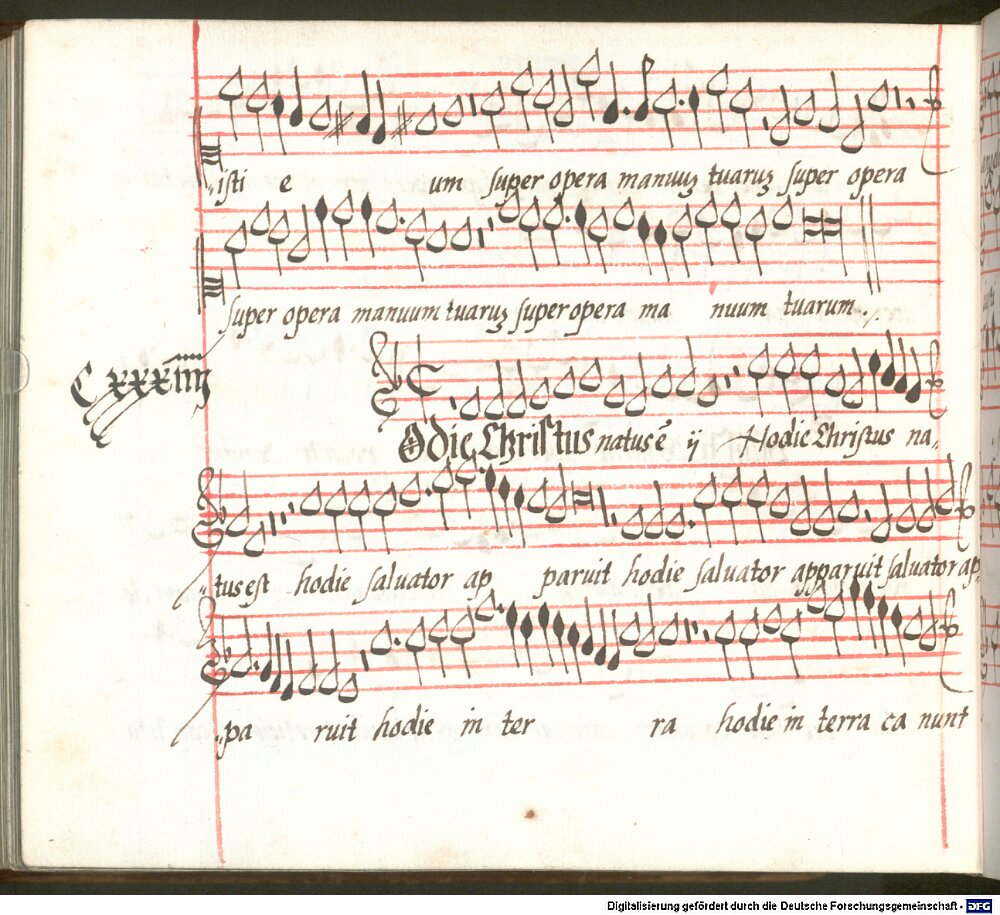 isti e um super opera manuuʒ tuaruʒ super opera
super opera manuum tuaruʒ super opera ma nuum tuarum
Cxxxiiij
Odie Christus natus ē ij Hodie Christus na,
tus est hodie saluator ap paruit hodie saluator apparuit saluator ap
pa ruit hodie in ter ra hodie in terra ca nunt
Digitalisierung gefördert durch die Deutsche Forschungsgemeinschaft - DFG